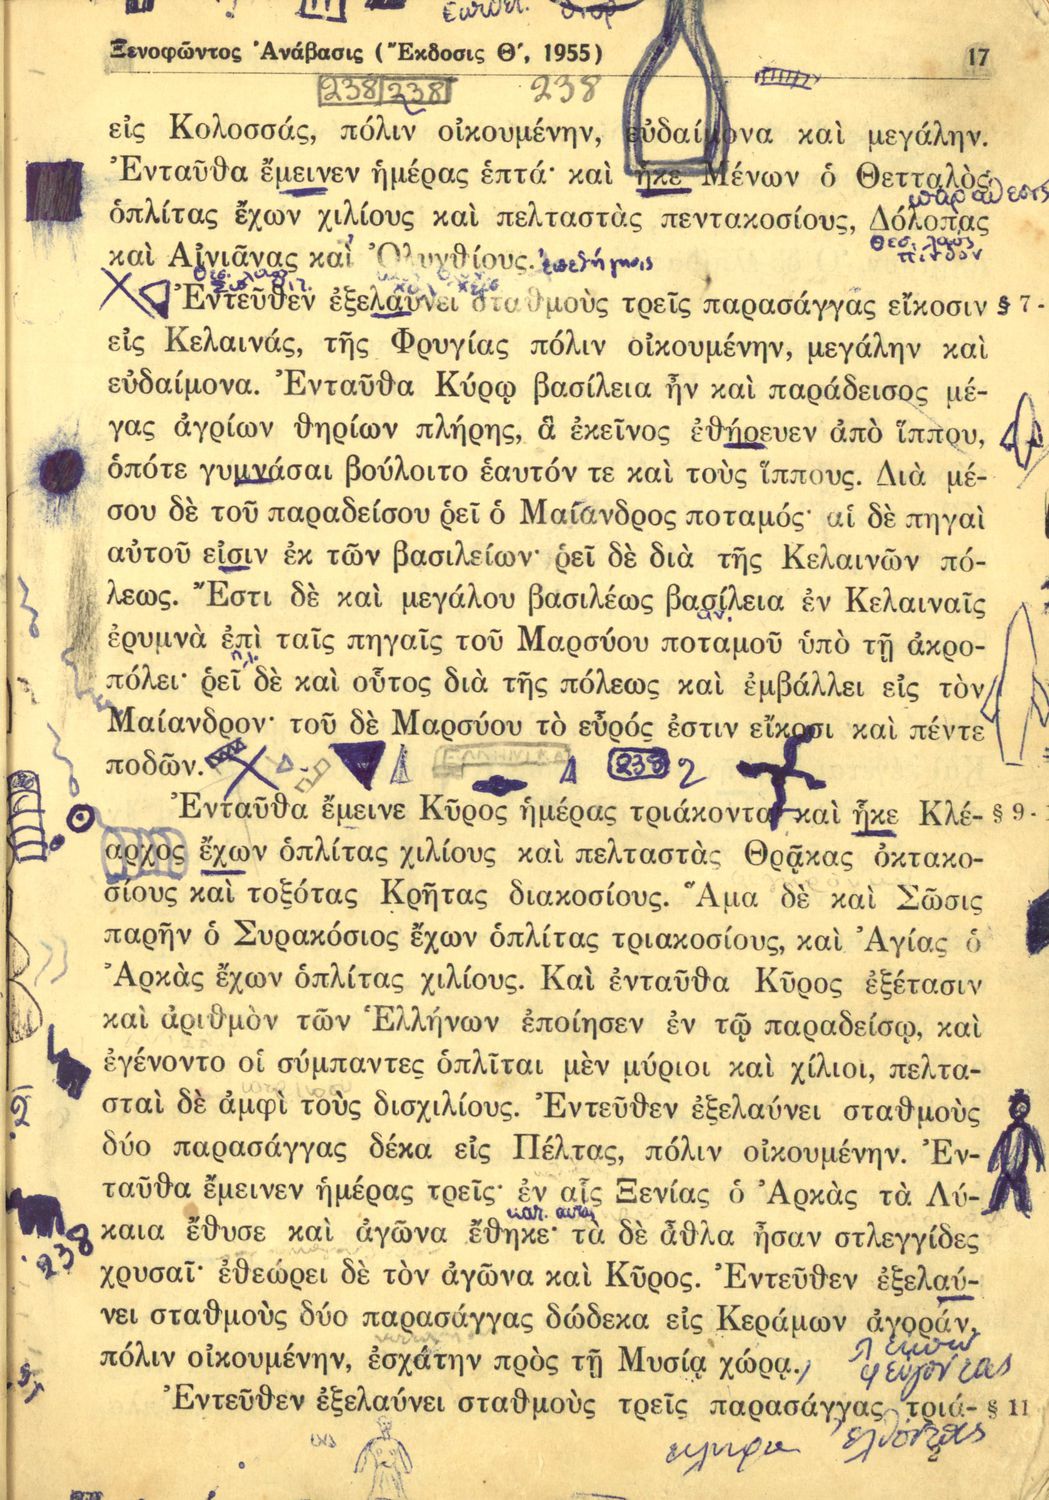 Ξενοφῶντος Ἀνάβασις (Ἔκδοσις Θ′, 1955) 17
238 238 238
εἰς Κολοσσάς, πόλιν οἰκουμένην, εὐδαίμονα καὶ μεγάλην.
Ἐνταῦθα ἔμεινεν ἡμέρας ἑπτά· καὶ ἧκε Μένων ὁ Θετταλὸς
ὁπλίτας ἔχων χιλίους καὶ πελταστὰς πεντακοσίους, Δόλοπας
καὶ Αἰνιᾶνας καὶ Ὀλυνθίους.
Ἐντεῦθεν ἐξελαύνει σταθμοὺς τρεῖς παρασάγγας εἴκοσιν § 7-
εἰς Κελαινάς, τῆς Φρυγίας πόλιν οἰκουμένην, μεγάλην καὶ
εὐδαίμονα. Ἐνταῦθα Κύρῳ βασίλεια ἦν καὶ παράδεισος μέ-
γας ἀγρίων θηρίων πλήρης, ἃ ἐκεῖνος ἐθήρευεν ἀπὸ ἵππου,
ὁπότε γυμνάσαι βούλοιτο ἑαυτόν τε καὶ τοὺς ἵππους. Διὰ μέ-
σου δὲ τοῦ παραδείσου ῥεῖ ὁ Μαίανδρος ποταμός· αἱ δὲ πηγαὶ
αὐτοῦ εἰσιν ἐκ τῶν βασιλείων· ῥεῖ δὲ διὰ τῆς Κελαινῶν πό-
λεως. Ἔστι δὲ καὶ μεγάλου βασιλέως βασίλεια ἐν Κελαιναῖς
ἐρυμνὰ ἐπὶ ταῖς πηγαῖς τοῦ Μαρσύου ποταμοῦ ὑπὸ τῇ ἀκρο-
πόλει· ῥεῖ δὲ καὶ οὗτος διὰ τῆς πόλεως καὶ ἐμβάλλει εἰς τὸν
Μαίανδρον· τοῦ δὲ Μαρσύου τὸ εὖρός ἐστιν εἴκοσι καὶ πέντε
ποδῶν. 238 2
Ἐνταῦθα ἔμεινε Κῦρος ἡμέρας τριάκοντα καὶ ἧκε Κλέ- § 9-
αρχος ἔχων ὁπλίτας χιλίους καὶ πελταστὰς Θρᾷκας ὀκτακο-
σίους καὶ τοξότας Κρῆτας διακοσίους. Ἅμα δὲ καὶ Σῶσις
παρῆν ὁ Συρακόσιος ἔχων ὁπλίτας τριακοσίους, καὶ Ἀγίας ὁ
Ἀρκὰς ἔχων ὁπλίτας χιλίους. Καὶ ἐνταῦθα Κῦρος ἐξέτασιν
καὶ ἀριθμὸν τῶν Ἑλλήνων ἐποίησεν ἐν τῷ παραδείσῳ, καὶ
ἐγένοντο οἱ σύμπαντες ὁπλῖται μὲν μύριοι καὶ χίλιοι, πελτα-
σταὶ δὲ ἀμφὶ τοὺς δισχιλίους. Ἐντεῦθεν ἐξελαύνει σταθμοὺς
δύο παρασάγγας δέκα εἰς Πέλτας, πόλιν οἰκουμένην. Ἐν-
ταῦθα ἔμεινεν ἡμέρας τρεῖς· ἐν αἷς Ξενίας ὁ Ἀρκὰς τὰ Λύ-
καια ἔθυσε καὶ ἀγῶνα ἔθηκε· τὰ δὲ ἆθλα ἦσαν στλεγγίδες
238
χρυσαῖ· ἐθεώρει δὲ τὸν ἀγῶνα καὶ Κῦρος. Ἐντεῦθεν ἐξελαύ-
νει σταθμοὺς δύο παρασάγγας δώδεκα εἰς Κεράμων ἀγοράν,
πόλιν οἰκουμένην, ἐσχάτην πρὸς τῇ Μυσίᾳ χώρᾳ.
Ἐντεῦθεν ἐξελαύνει σταθμοὺς τρεῖς παρασάγγας τριά- § 11